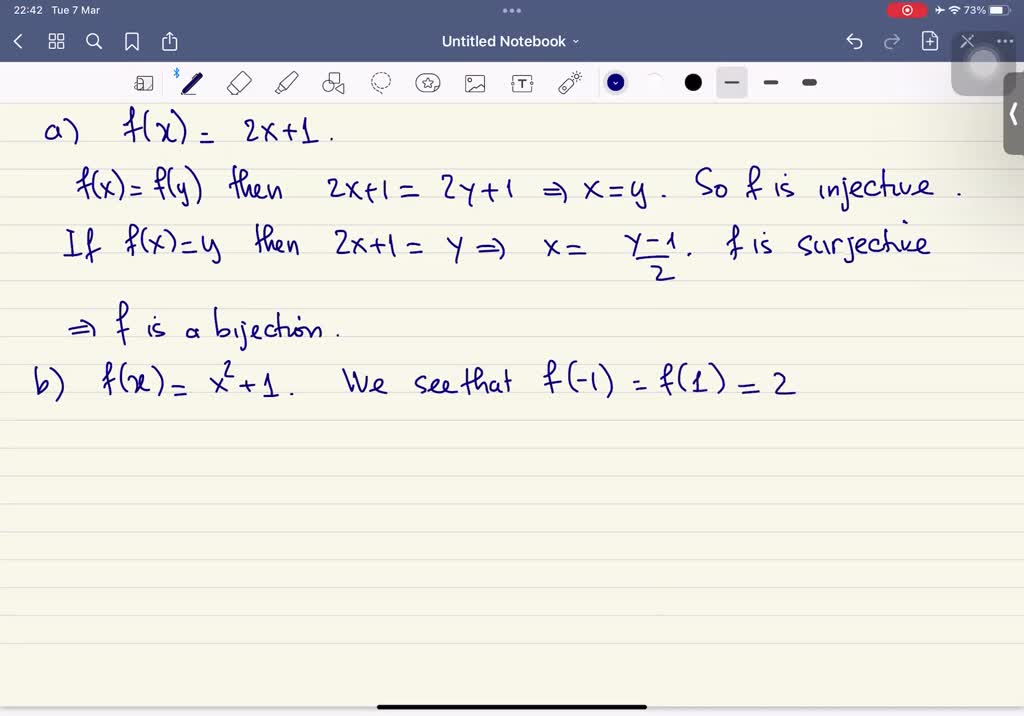 22:42 Tue 7 Mar 73%
Untitled Notebook
a) f(x) = 2x+1.
f(x) = f(y) then 2x+1 = 2y+1 ⇒ x=y. So f is injective.
If f(x)=y then 2x+1 = y ⇒ x = (y-1)/2. f is surjective
⇒ f is a bijection.
b) f(x) = x²+1. We see that f(-1) = f(1) = 2